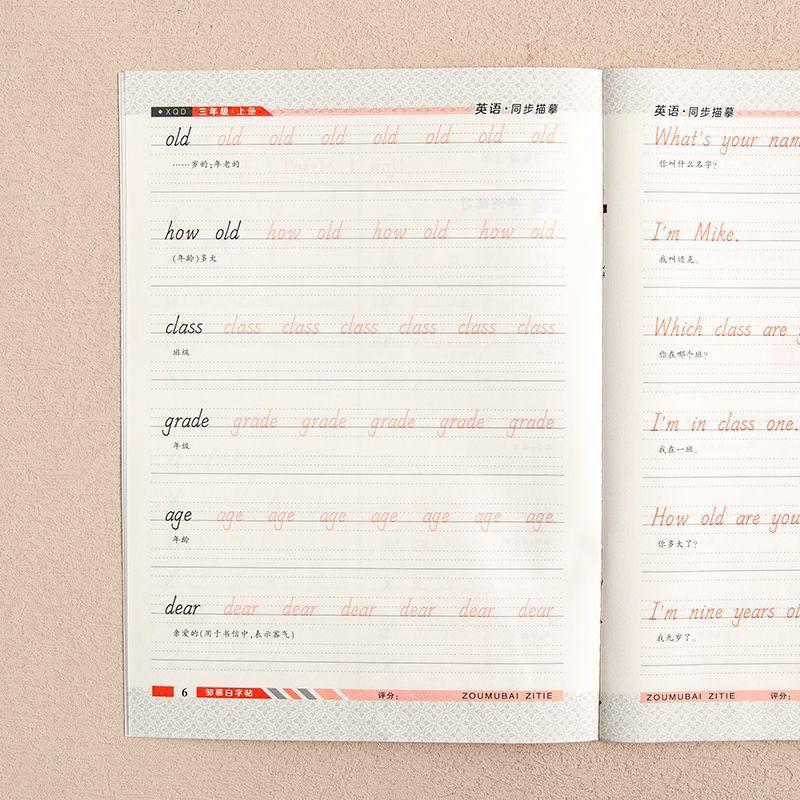 XQD 三年级·上册 英语·同步描摹
old old old old old old old old
……岁的;年老的
how old how old how old how old
(年龄)多大
class class class class class class class
班级
grade grade grade grade grade grade
年级
age age age age age age age age
年龄
dear dear dear dear dear dear dear
亲爱的(用于书信中,表示客气)
6 邹慕白字帖 评分: ZOUMUBAI ZITIE
英语·同步描摹
What's your nam
你叫什么名字?
I'm Mike.
我叫迈克。
Which class are
你在哪个班?
I'm in class one.
我在一班。
How old are you
你多大了?
I'm nine years ol
我九岁了。
ZOUMUBAI ZITIE 评分: